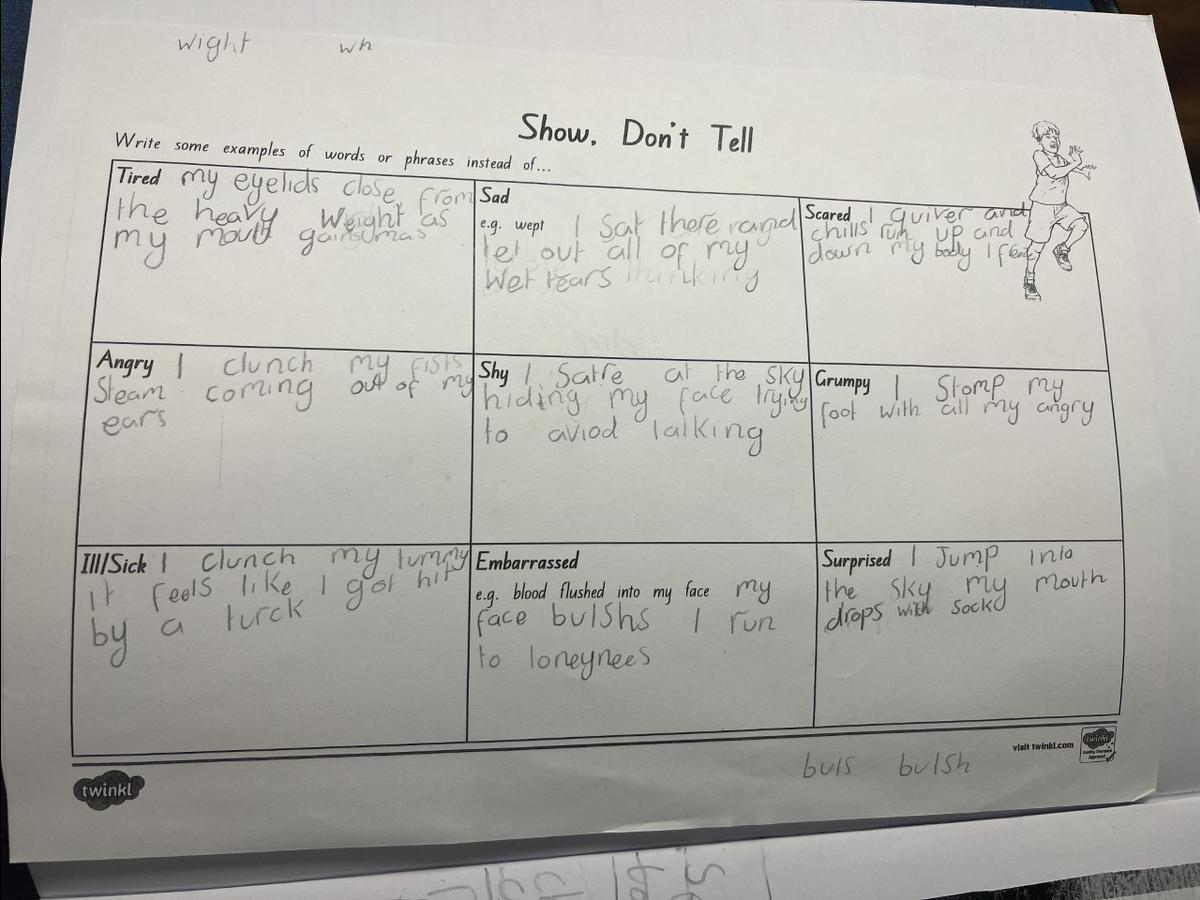 wight wh
Show, Don't Tell
Write some examples of words or phrases instead of...
Tired my eyelids close, from
the heavy weight as
my mouth
Sad
e.g. wept I sat there
let out all of my
wet tears thinking
Scared I quiver and
chills run up and
down my body I
Angry I clunch my fists
Steam coming out of my
ears
Shy I Satre at the sky
hiding my face trying
to aviod talking
Grumpy I Stomp my
foot with all my angry
Ill/Sick I clunch my tummy
it feels like I got hit
by a turck
Embarrassed
e.g. blood flushed into my face my
face bulshs I run
to loneynees
Surprised I Jump into
the sky my mouth
drops with sock
visit twinkl.com
twinkl
buls bulsh
twinkl